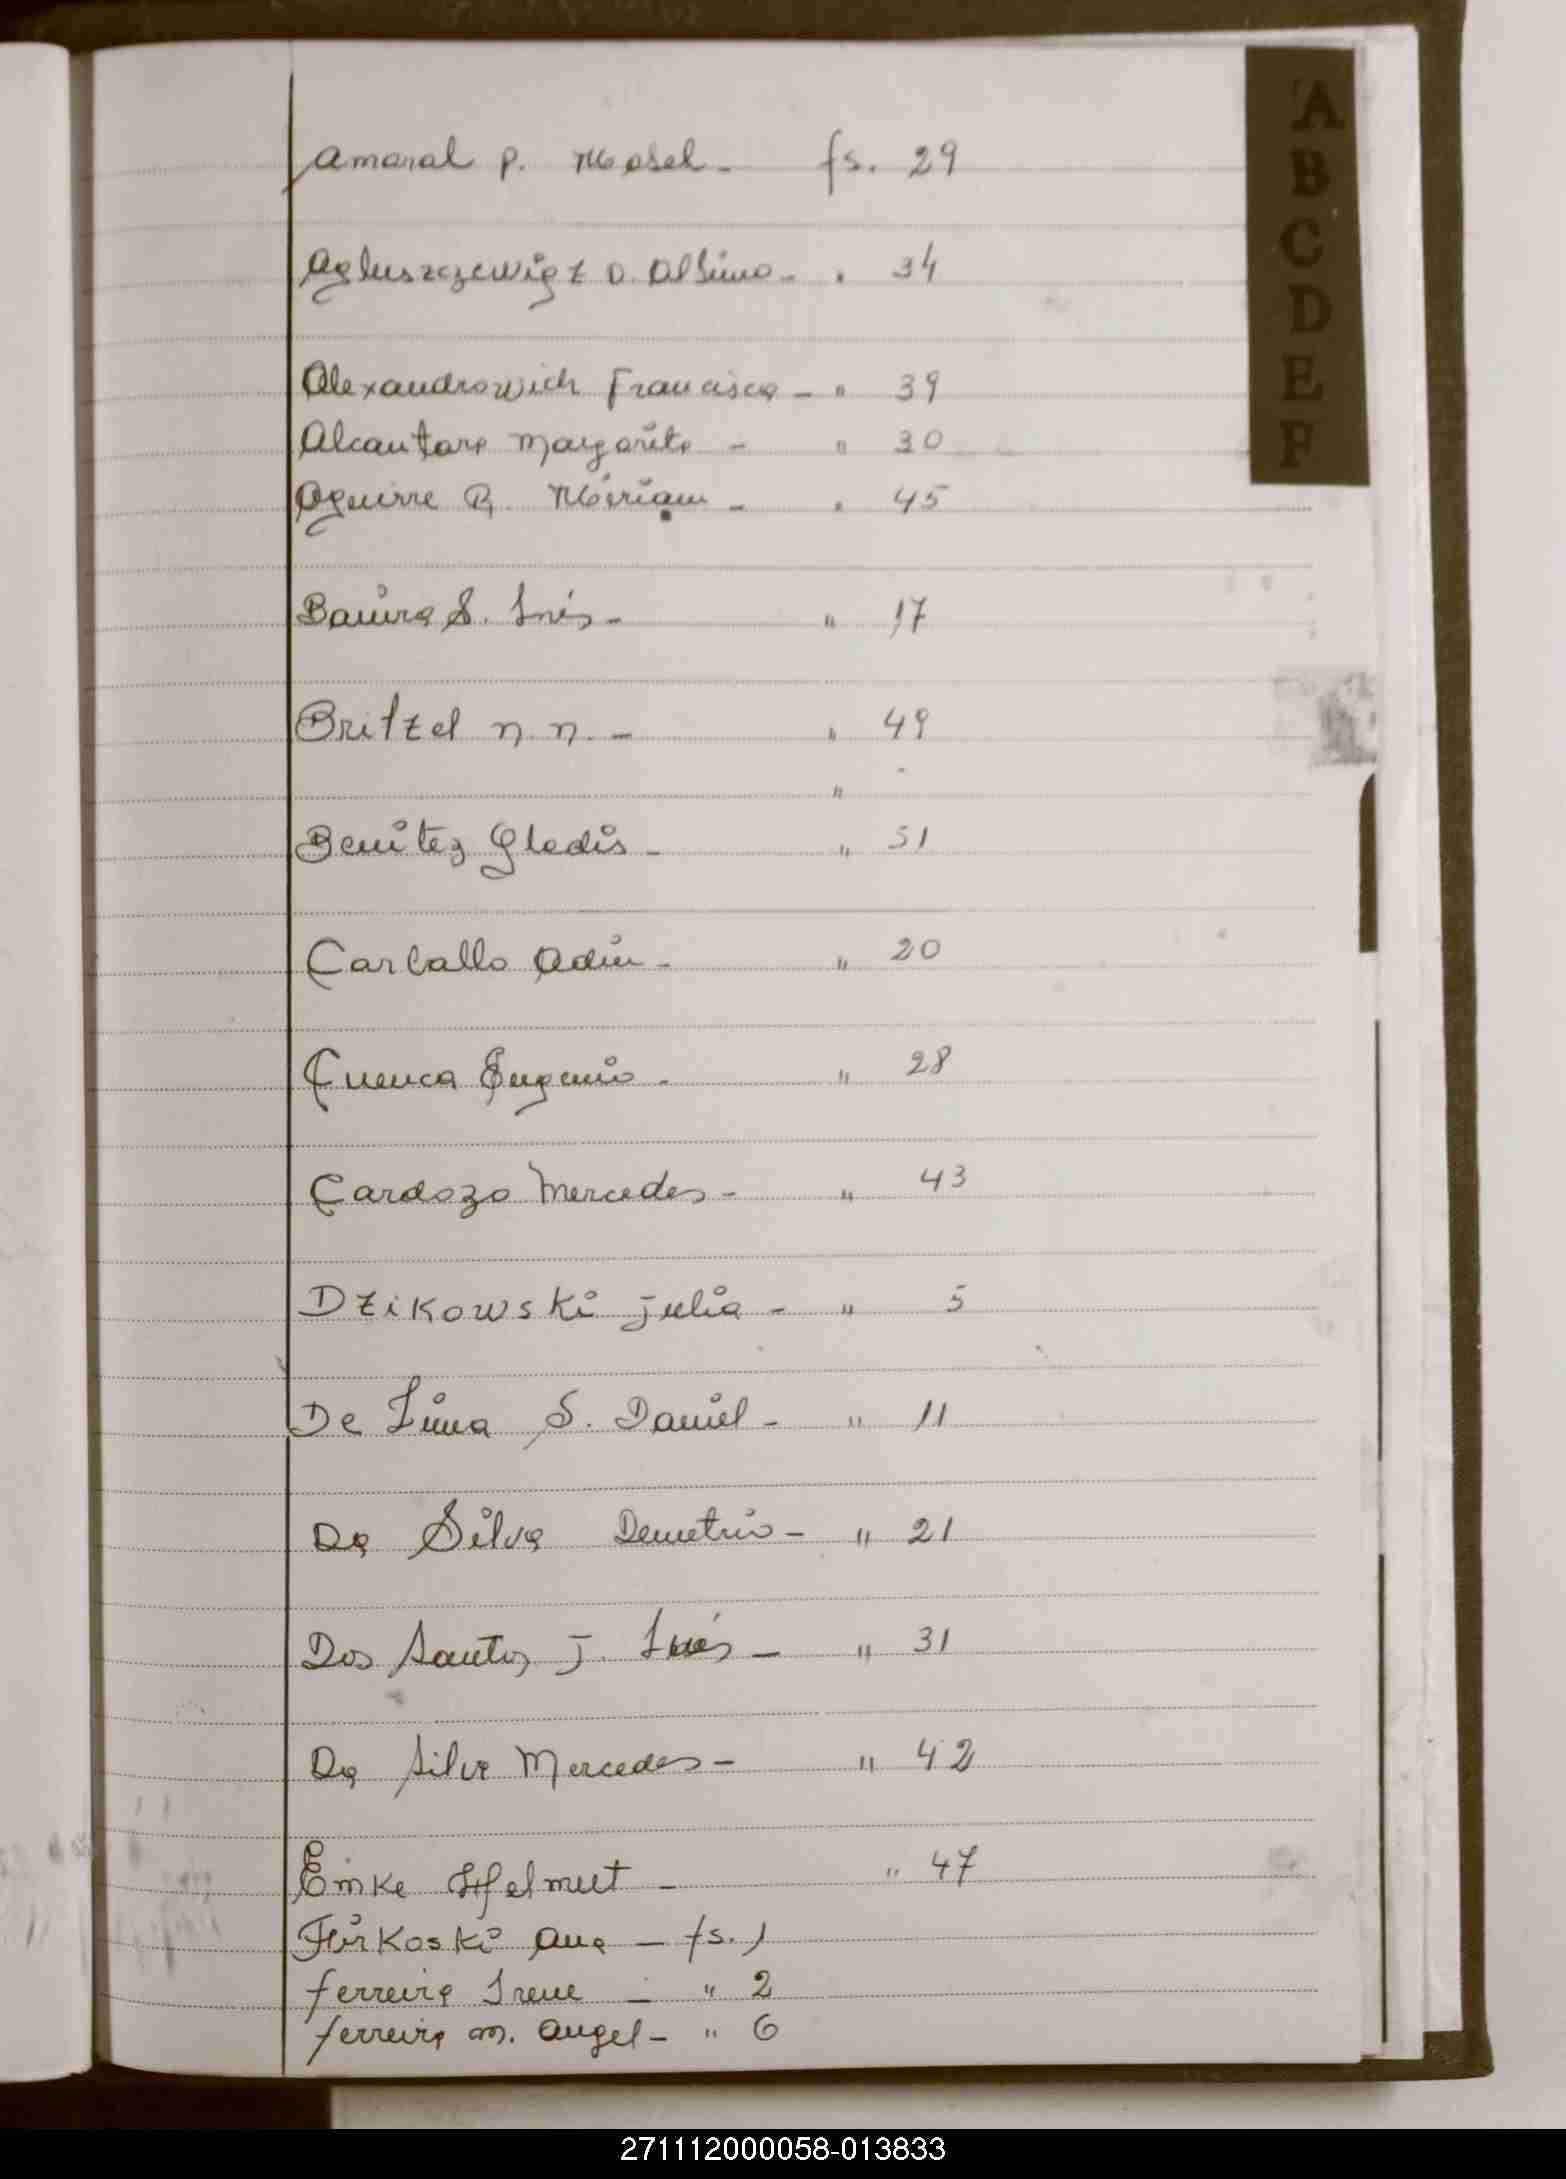 Amaral P. Mabel - fs. 29
A
B
C
D
E
F
Agluszczewigz D. Albino - " 34
Alexandrowich Francisca - " 39
Alcantara Margarita - " 30
Aguirre R. Miriam - " 45
Bauira S. Inés - " 17
Britzel n.n. - " 49
"
Benitez Gladis - " 51
Carballo Adin - " 20
Cuenca Eugenio - " 28
Cardozo Mercedes - " 43
Dzikowski Julia - " 5
De Lima S. Daniel - " 11
Da Silva Demetrio - " 21
Dos Santos J. Inés - " 31
Da Silva Mercedes - " 42
Emke Helmut - " 47
Flirkoski Ana - fs. 1
Ferreira Irene - " 2
Ferreira M. Angel - " 6
271112000058-013833